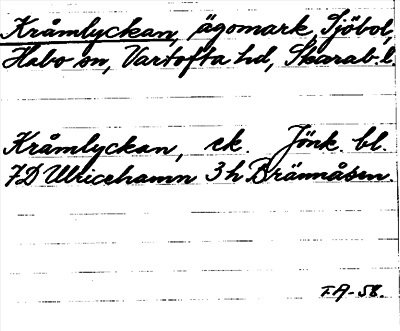 Kråmlyckan, ägomark, Sjöbol,
Habo sn, Vartofta hd, Skarab. l.
Kråmlyckan, ek. Jönk. bl.
7D Ulricehamn 3h Brännåsen.
T.A-58.